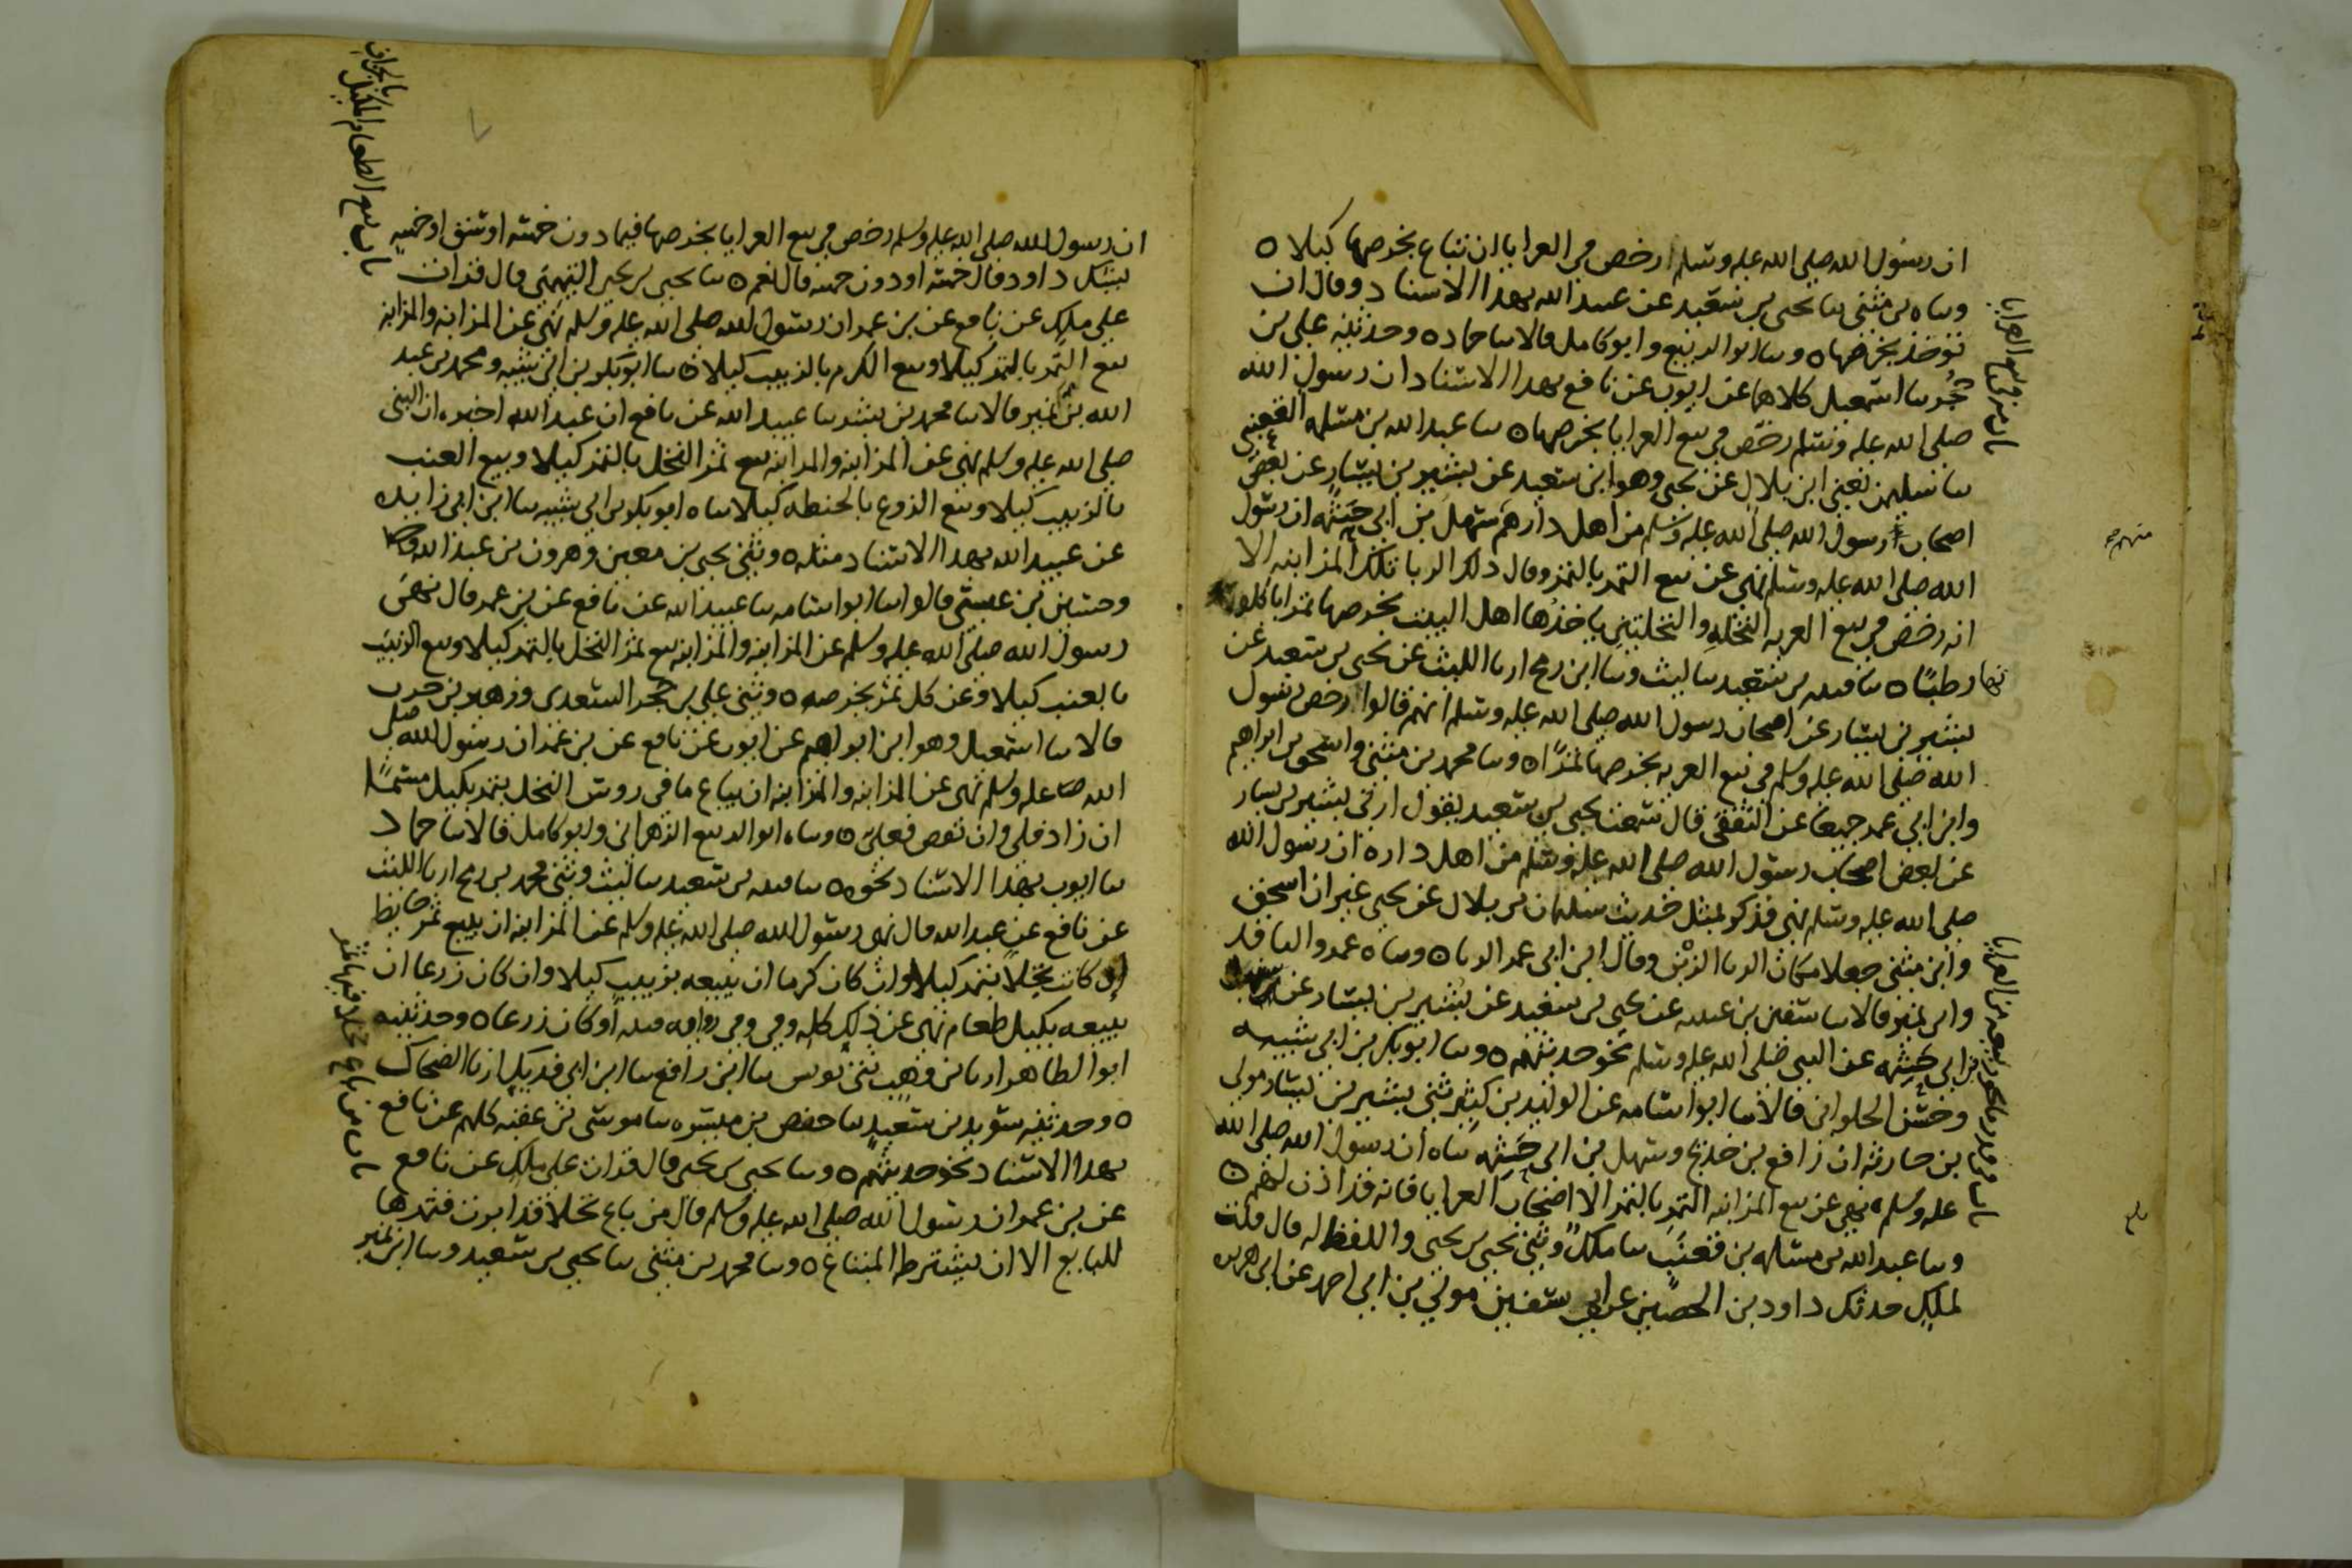 ان رسول الله صلى الله عليه وسلم ارخص في العرايا ان تباع بخرصها كيلا ه
وساه بن مثنى سا يحيى بن سعيد عن عبيد الله بهذا الاسناد وقال ان
تؤخذ بخرصها ه وسا ابو الربيع وابو كامل قالا سا حماد ه وحدثنيه علي بن
حجر سا اسمعيل كلاهما عن ايوب عن نافع بهذا الاسناد ان رسول الله
صلى الله عليه وسلم رخص في بيع العرايا بخرصها ه سا عبد الله بن مسلمه القعنبي
سا سليمن يعني ابن بلال عن يحيى وهو ابن سعيد عن بشير بن يسار عن بعض
اصحاب رسول الله صلى الله عليه وسلم من اهل دارهم سهل بن ابي حثمه ان رسول
الله صلى الله عليه وسلم نهى عن بيع التمر بالتمر وقال ذلك الربا تلك المزابنه الا
انه رخص في بيع العريه النخله والنخلتين ياخذها اهل البيت بخرصها تمرا ياكلو
نها رطبا ه سا قتيبه بن سعيد سا ليث وسا ابن رمح ارنا الليث عن يحيى بن سعيد عن
بشير بن يسار عن اصحاب رسول الله صلى الله عليه وسلم انهم قالوا رخص رسول
الله صلى الله عليه وسلم في بيع العريه بخرصها تمرا ه وسا محمد بن مثنى واسحق بن ابراهيم
وابن ابي عمر جميعا عن الثقفي قال سمعت يحيى بن سعيد يقول ارني بشير بن يسار
عن بعض اصحاب رسول الله صلى الله عليه وسلم من اهل داره ان رسول الله
صلى الله عليه وسلم نهى فذكر بمثل حديث سليمان بن بلال عن يحيى غير ان اسحق
وابن مثنى جعلا مكان الربا الزبن وقال ابن ابي عمر الربا ه وساه عمرو الناقد
وابن نمير قالا سا سفين بن عيينه عن يحيى بن سعيد عن بشير بن يسار عن سهل
بن ابي حثمه عن النبي صلى الله عليه وسلم نحو حديثهم ه وسا ابو بكر بن ابي شيبه
وحسن الحلواني قالا سا ابو اسامه عن الوليد بن كثير ثني بشير بن يسار مولى
بن حارثه ان رافع بن خديج وسهل بن ابي حثمه ساه ان رسول الله صلى الله
عليه وسلم نهى عن بيع المزابنه التمر بالتمر الا اصحاب العرايا فانه قد اذن لهم ه
وسا عبد الله بن مسلمه بن قعنب سا ملك وثني يحيى بن يحيى واللفظ له قال قلت
لملك حدثك داود بن الحصين عن ابي سفين مولى بن ابي احمد عن ابي هريره
ان رسول الله صلى الله عليه وسلم رخص في بيع العرايا بخرصها فيما دون خمسه اوسق او خمسه
يشك داود قال خمسه او دون خمسه قال نعم ه سا يحيى بن يحيى التيمي قال قرات
على ملك عن نافع عن بن عمر ان رسول الله صلى الله عليه وسلم نهى عن المزابنه والمزابنه
بيع الثمر بالتمر كيلا وبيع الكرم بالزبيب كيلا ه سا ابو بكر بن ابي شيبه ومحمد بن عبد
الله بن نمير قالا سا محمد بن بشر سا عبيد الله عن نافع ان عبد الله اخبره ان النبي
صلى الله عليه وسلم نهى عن المزابنه والمزابنه بيع ثمر النخل بالتمر كيلا وبيع العنب
بالزبيب كيلا وبيع الزرع بالحنطه كيلا ساه ابو بكر بن ابي شيبه سا ابن ابي زايده
عن عبيد الله بهذا الاسناد مثله ه وثني يحيى بن معين وهرون بن عبد الله
وحسين بن عيسى قالوا سا ابو اسامه سا عبيد الله عن نافع عن بن عمر قال نهى
رسول الله صلى الله عليه وسلم عن المزابنه والمزابنه بيع ثمر النخل بالتمر كيلا وبيع الزبيب
بالعنب كيلا وعن كل ثمر بخرصه ه وثني علي بن حجر السعدي وزهير بن حرب
قالا سا اسمعيل وهو ابن ابراهيم عن ايوب عن نافع عن بن عمر ان رسول الله صلى
الله عليه وسلم نهى عن المزابنه والمزابنه ان يباع ما في روس النخل بتمر بكيل مسمى
ان زاد فلي وان نقص فعلي ه وساه ابو الربيع الزهراني وابو كامل قالا سا حماد
سا ايوب بهذا الاسناد نحوه ه سا قتيبه بن سعيد سا ليث وثني محمد بن رمح ارنا الليث
عن نافع عن عبد الله قال نهى رسول الله صلى الله عليه وسلم عن المزابنه ان يبيع ثمر حايطه
ان كانت نخلا بتمر كيلا وان كان كرما ان يبيعه بزبيب كيلا وان كان زرعا ان
يبيعه بكيل طعام نهى عن ذلك كله وفي روايه قتيبه او كان زرعا ه وحدثنيه
ابو الطاهر ارنا بن وهب ثني يونس سا ابن رافع سا ابن ابي فديك ارنا الضحاك
ه وحدثنيه سويد بن سعيد سا حفص بن ميسره سا موسى بن عقبه كلهم عن نافع
بهذا الاسناد نحو حديثهم ه وسا يحيى بن يحيى قال قرات على ملك عن نافع
عن بن عمر ان رسول الله صلى الله عليه وسلم قال من باع نخلا قد ابرت فثمرها
للبايع الا ان يشترط المبتاع ه وسا محمد بن مثنى سا يحيى بن سعيد وسا ابن نمير
باب بيع الطعام المكيل بالجزاف
باب من باع نخلا فيها ثمر